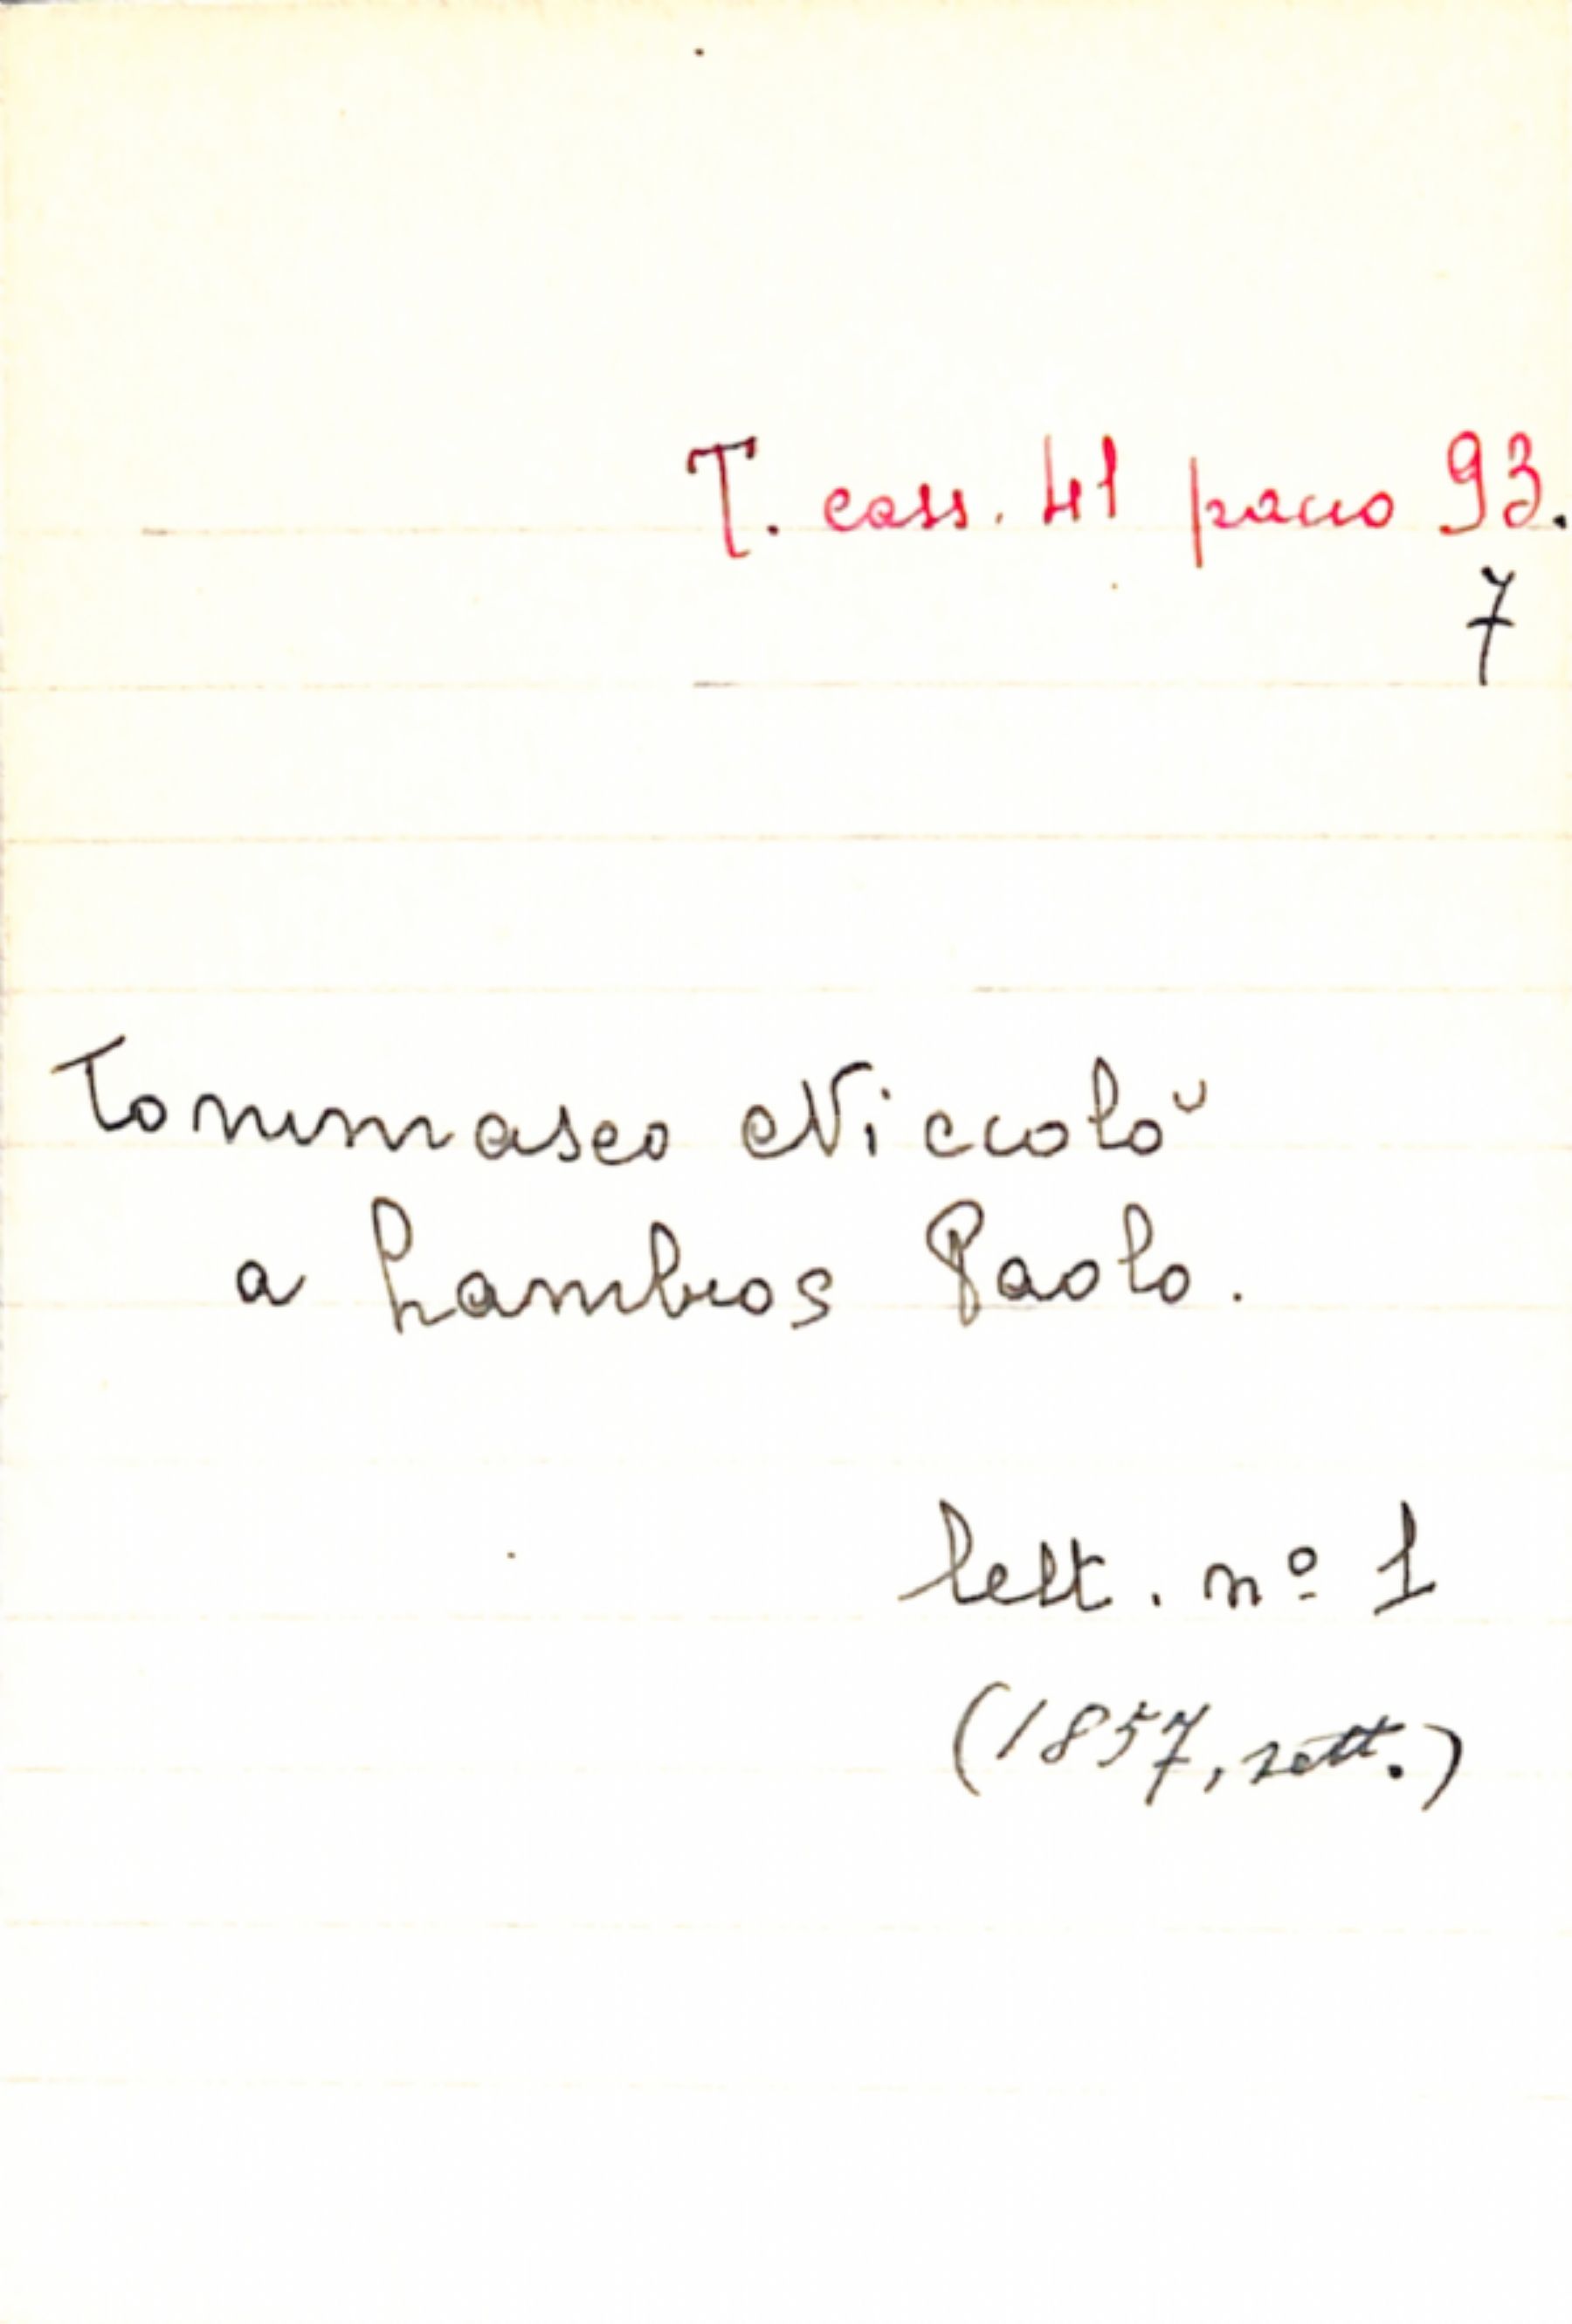 T. cass. 41 pacco 93.
7
Tommaseo Niccolò
a Lambros Paolo.
lett. nº 1
(1857, sett.)